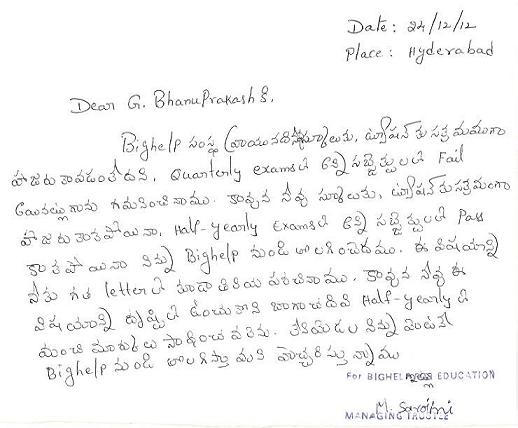 Date: 24/12/12
Place: Hyderabad
Dear G. BhanuPrakash కి,
Bighelp సంస్థ స్కూలుకు, ట్యూషన్ కు సక్రమముగా
హాజరు కావడంలేదని, Quarterly examsలో అన్ని సబ్జెక్టులలో Fail
గమనించినాము. కావున నీవు స్కూలుకు, ట్యూషన్ కు సక్రమంగా
హాజరు కాకపోయినా, Half-yearly Examsలో అన్ని సబ్జెక్టులలో Pass
కాకపోయినా నిన్ను Bighelp నుండి తొలగించెదము. ఈ విషయాన్ని
నీకు గత letterలో కూడా తెలియ పరచినాము. కావున నీవు ఈ
విషయాన్ని దృష్టిలో ఉంచుకొని బాగా చదివి Half-yearly లో
మంచి మార్కులు సాధించ వలెను. లేకయెడల నిన్ను వెంటనే
Bighelp నుండి తొలగిస్తు మని హెచ్చరిస్తున్నాము
For BIGHELP EDUCATION
M. Sarojini
MANAGING TRUSTEE